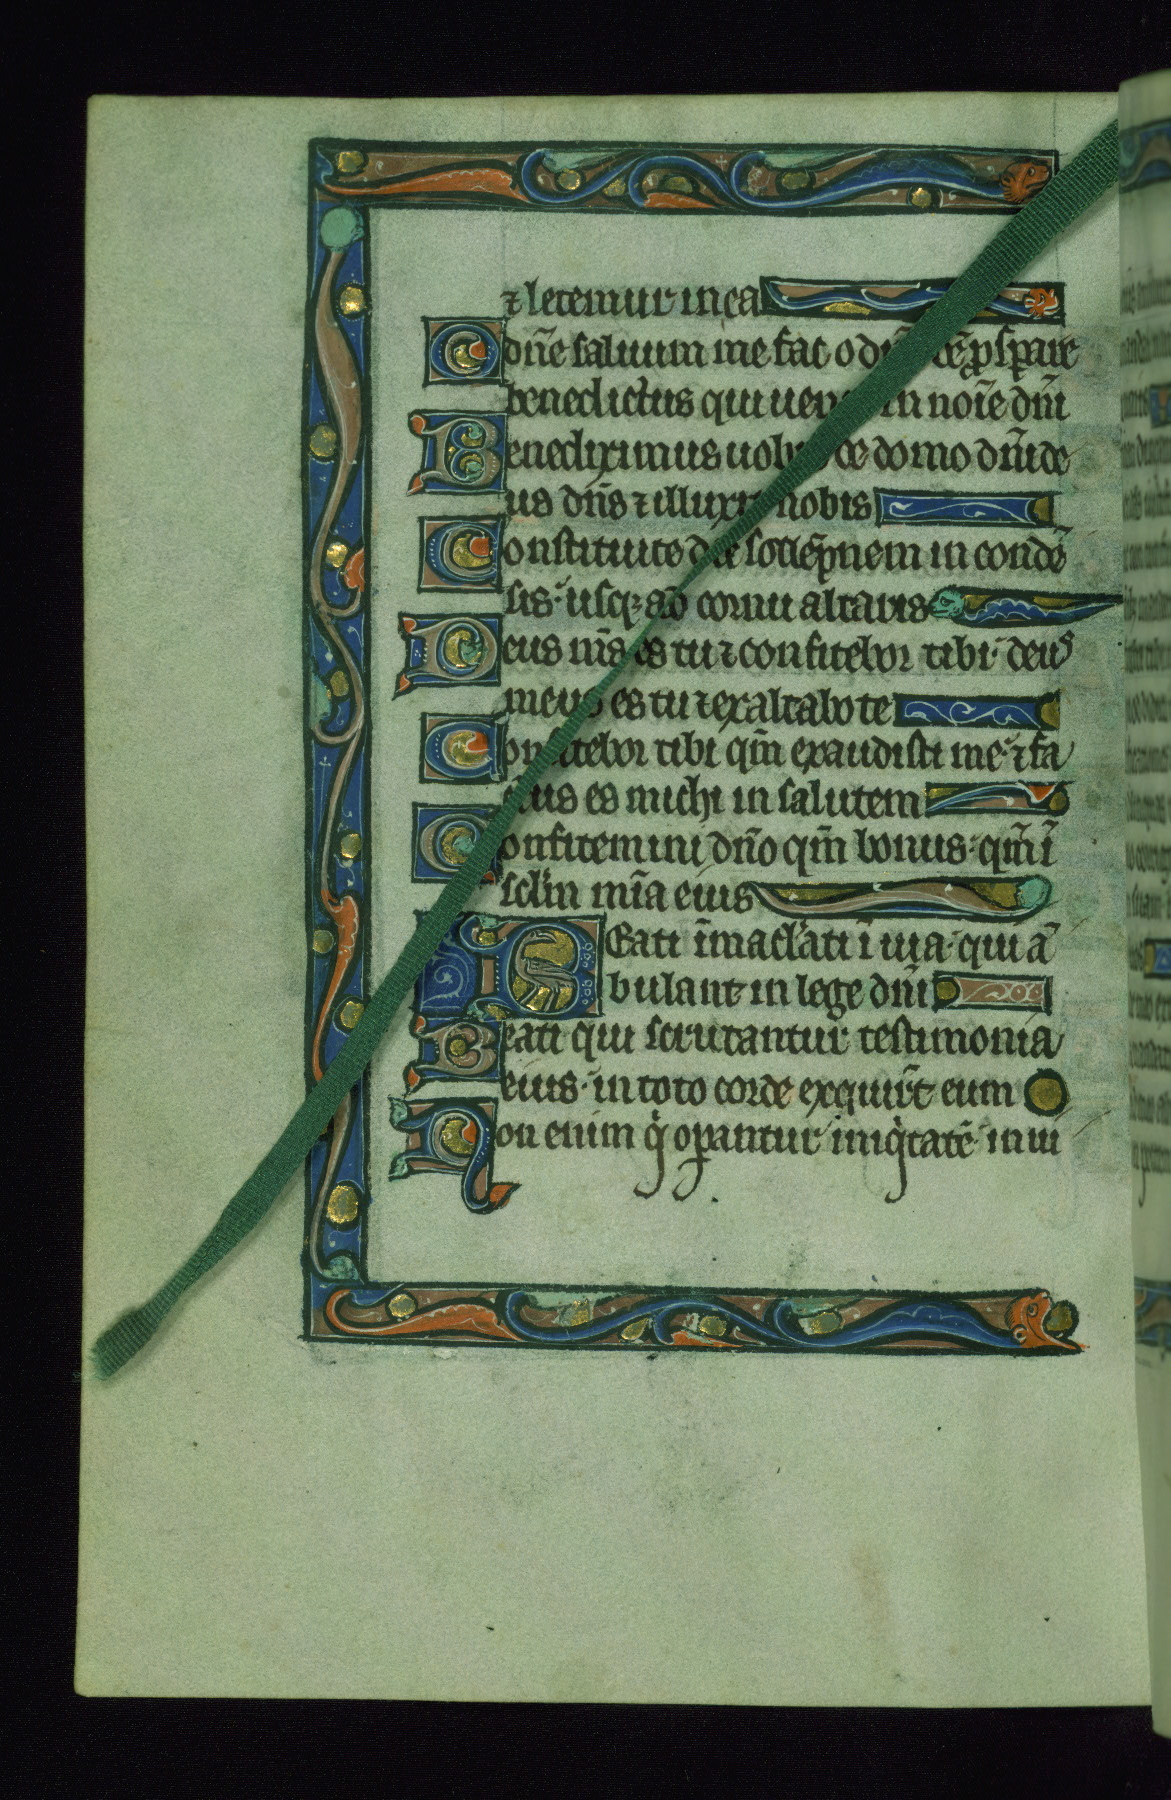 ⁊ letemur in ea
O dñe saluum me fac o dñe ƀn̄ ꝓsꝑare
benedictus qui uenit in noĩe dñi
Benediximus uobis de domo dñi de
us dñs ⁊ illuxit nobis
Constituite diē sollēpnem in conde
sis· usq; ad cornu altaris
Deus m̃s es tu ⁊ confitebor tibi· deus
meus es tu ⁊ exaltabo te
Confitebor tibi qm̃ exaudisti me· ⁊ fa
ctus es michi in salutem
Confitemini dño qm̃ bonus· qm̃ ĩ
sclm̃ mĩa eius
BEati ĩmaculati ĩ uia· qui ã
bulant in lege dñi
Beati qui scrutantur testimonia
eius· in toto corde exquirũt eum
Non enim q̇ oꝑantur iniq̇tatē· in ui